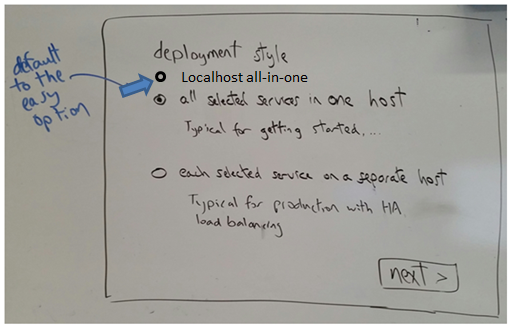 deployment style
default
to the
easy
option
Localhost all-in-one
all selected services in one host
Typical for getting started, ...
each selected service on a separate host
Typical for production with HA
load balancing
next >